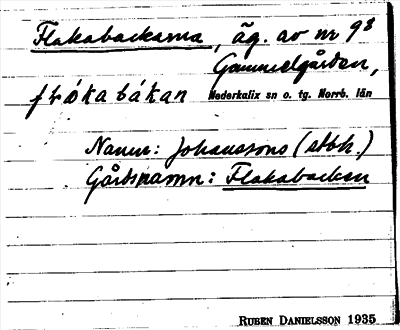 Flakabackarna, äg. av nr 9⁸
Gammelgården,
flákabákan Nederkalix sn o. tg. Norrb. län
Namn: Johanssons (stbk.)
Gårdsnamn: Flakabacken
RUBEN DANIELSSON 1935